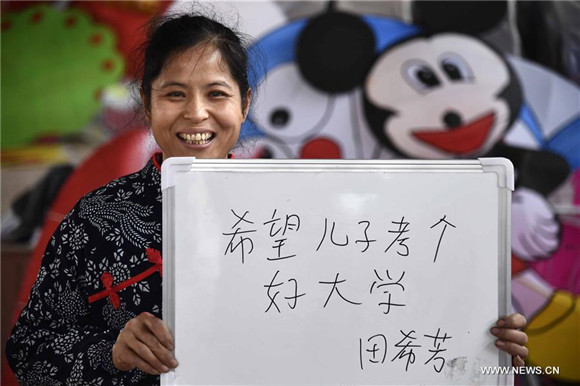 希望儿子考个
好大学
田希芳
WWW.NEWS.CN